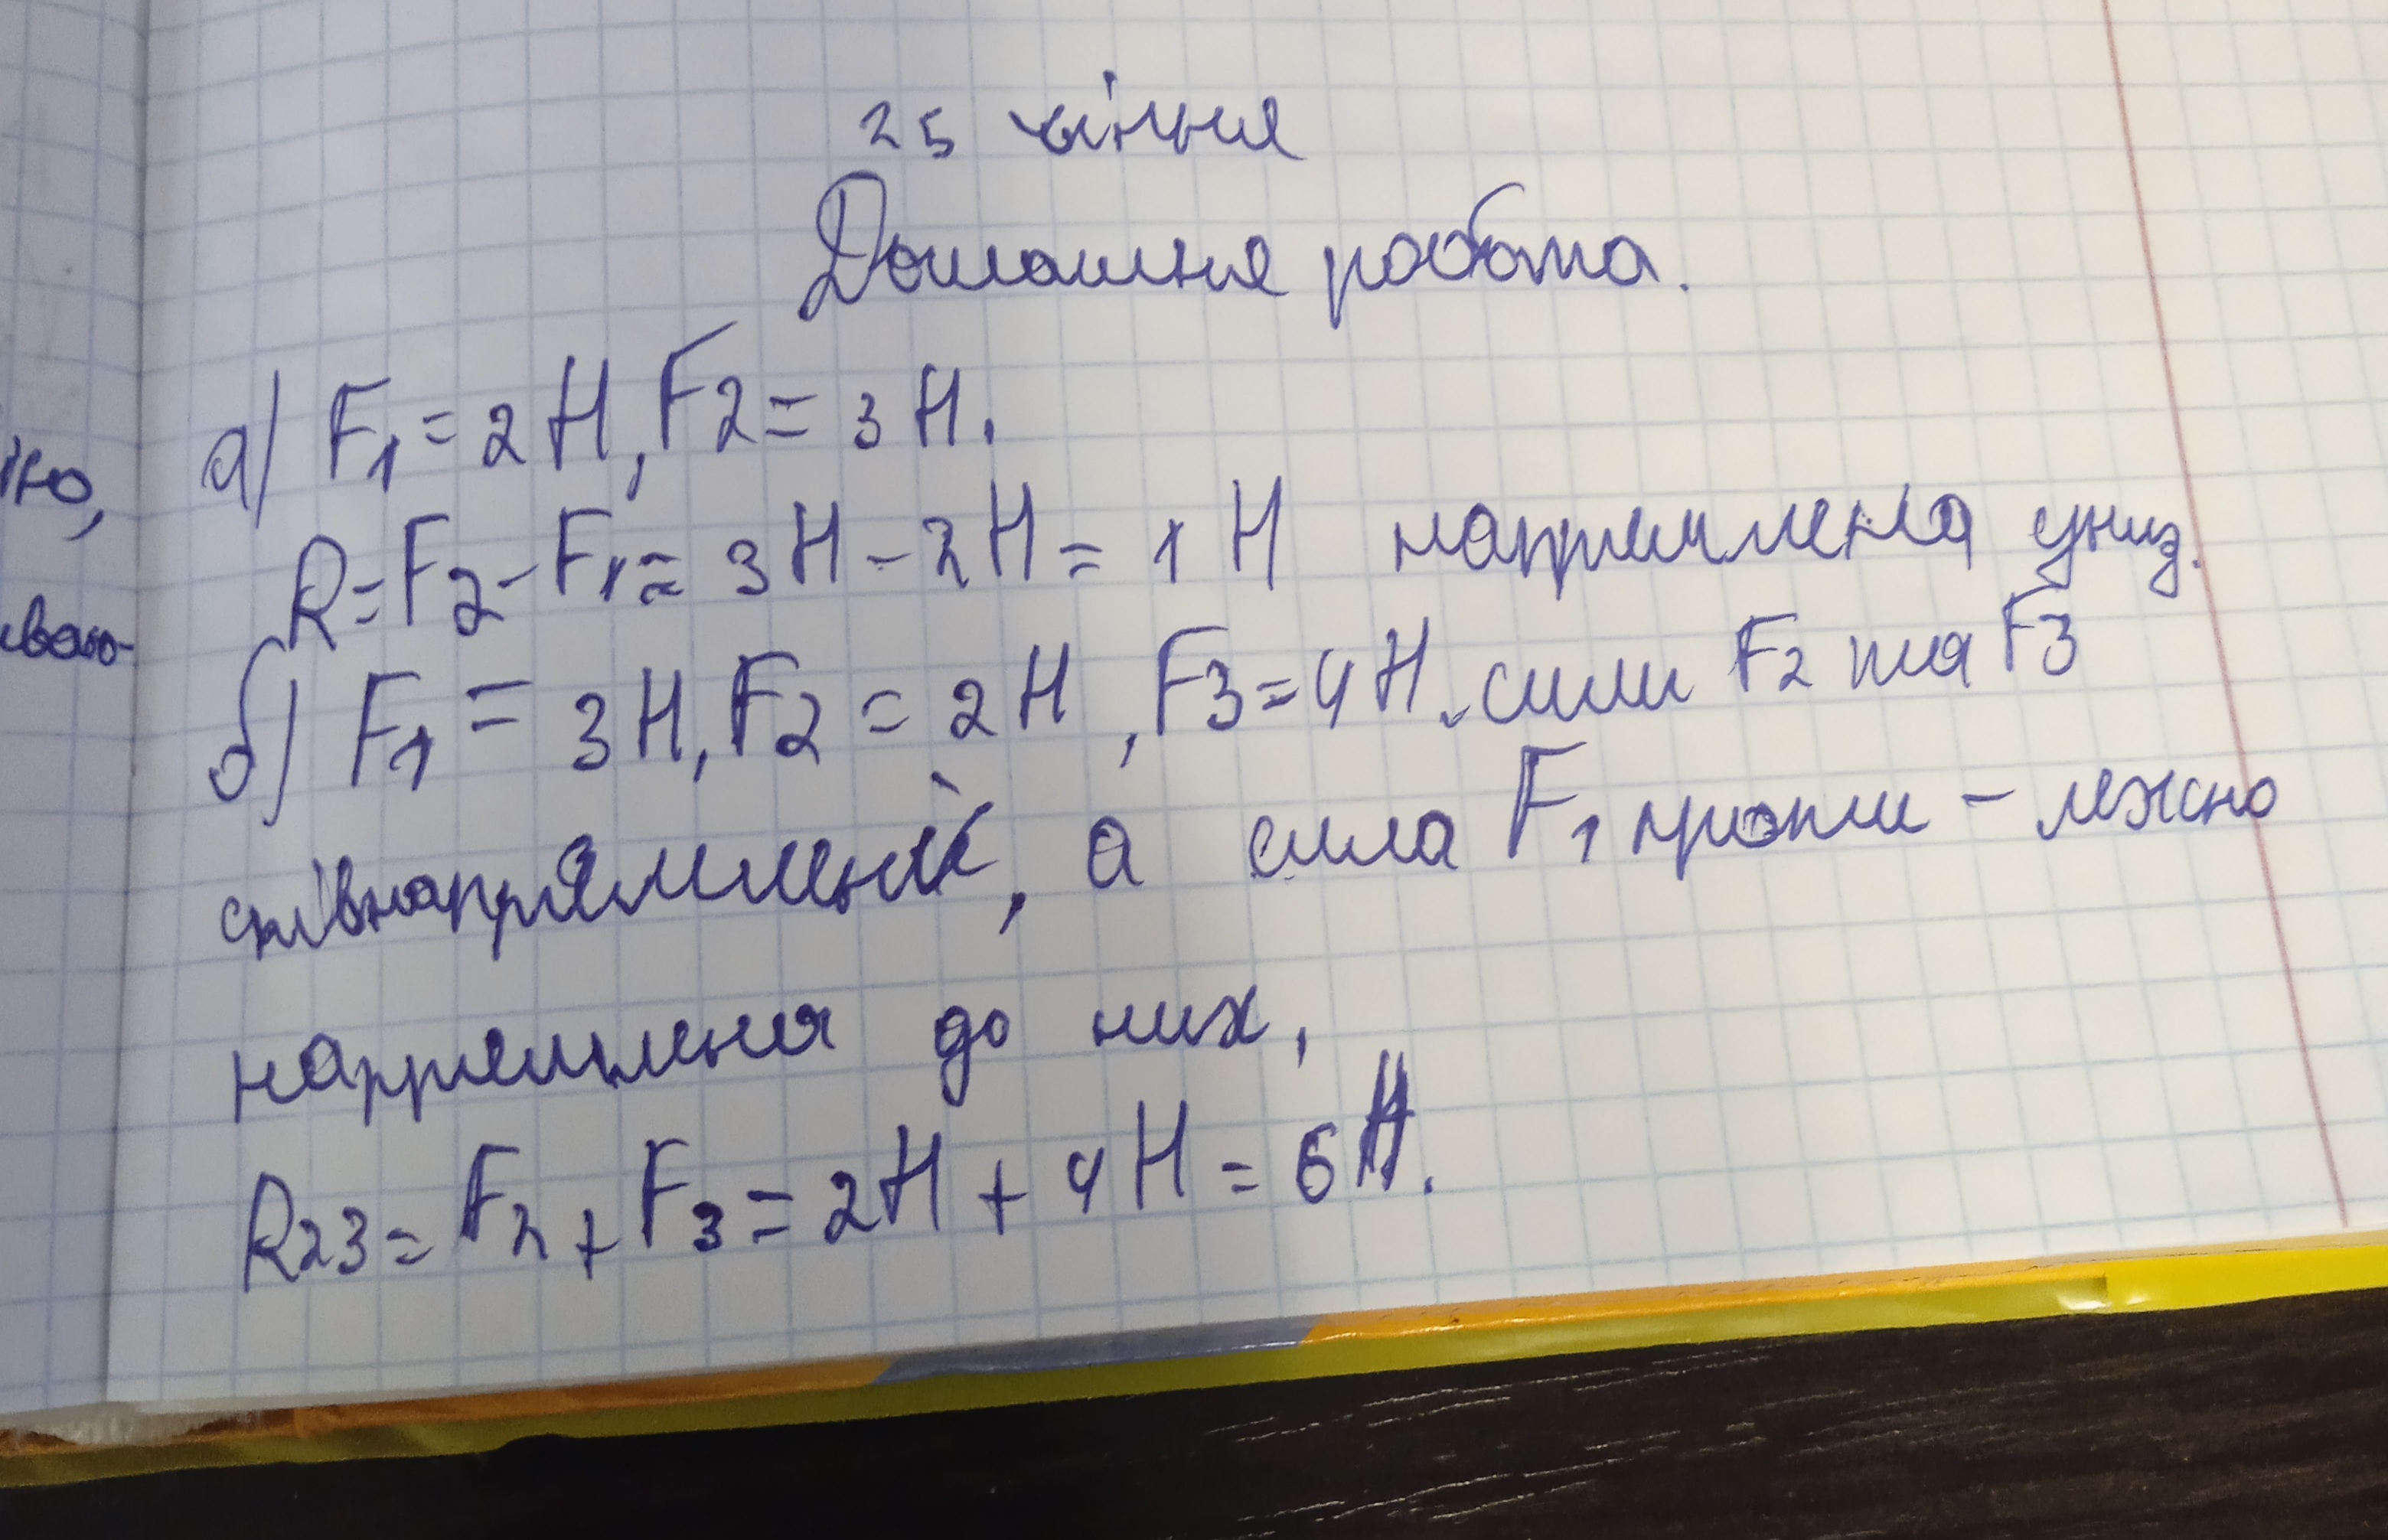 25 січня
Домашня робота.
а) F1 = 2 Н, F2 = 3 Н.
R = F2 - F1 = 3 Н - 2 Н = 1 Н напрямлена униз.
б) F1 = 3 Н, F2 = 2 Н, F3 = 4 Н. сили F2 та F3
співнапрямлені, а сила F1 проти - лежно
напрямлена до них,
R23 = F2 + F3 = 2 Н + 4 Н = 6 Н.
ню,